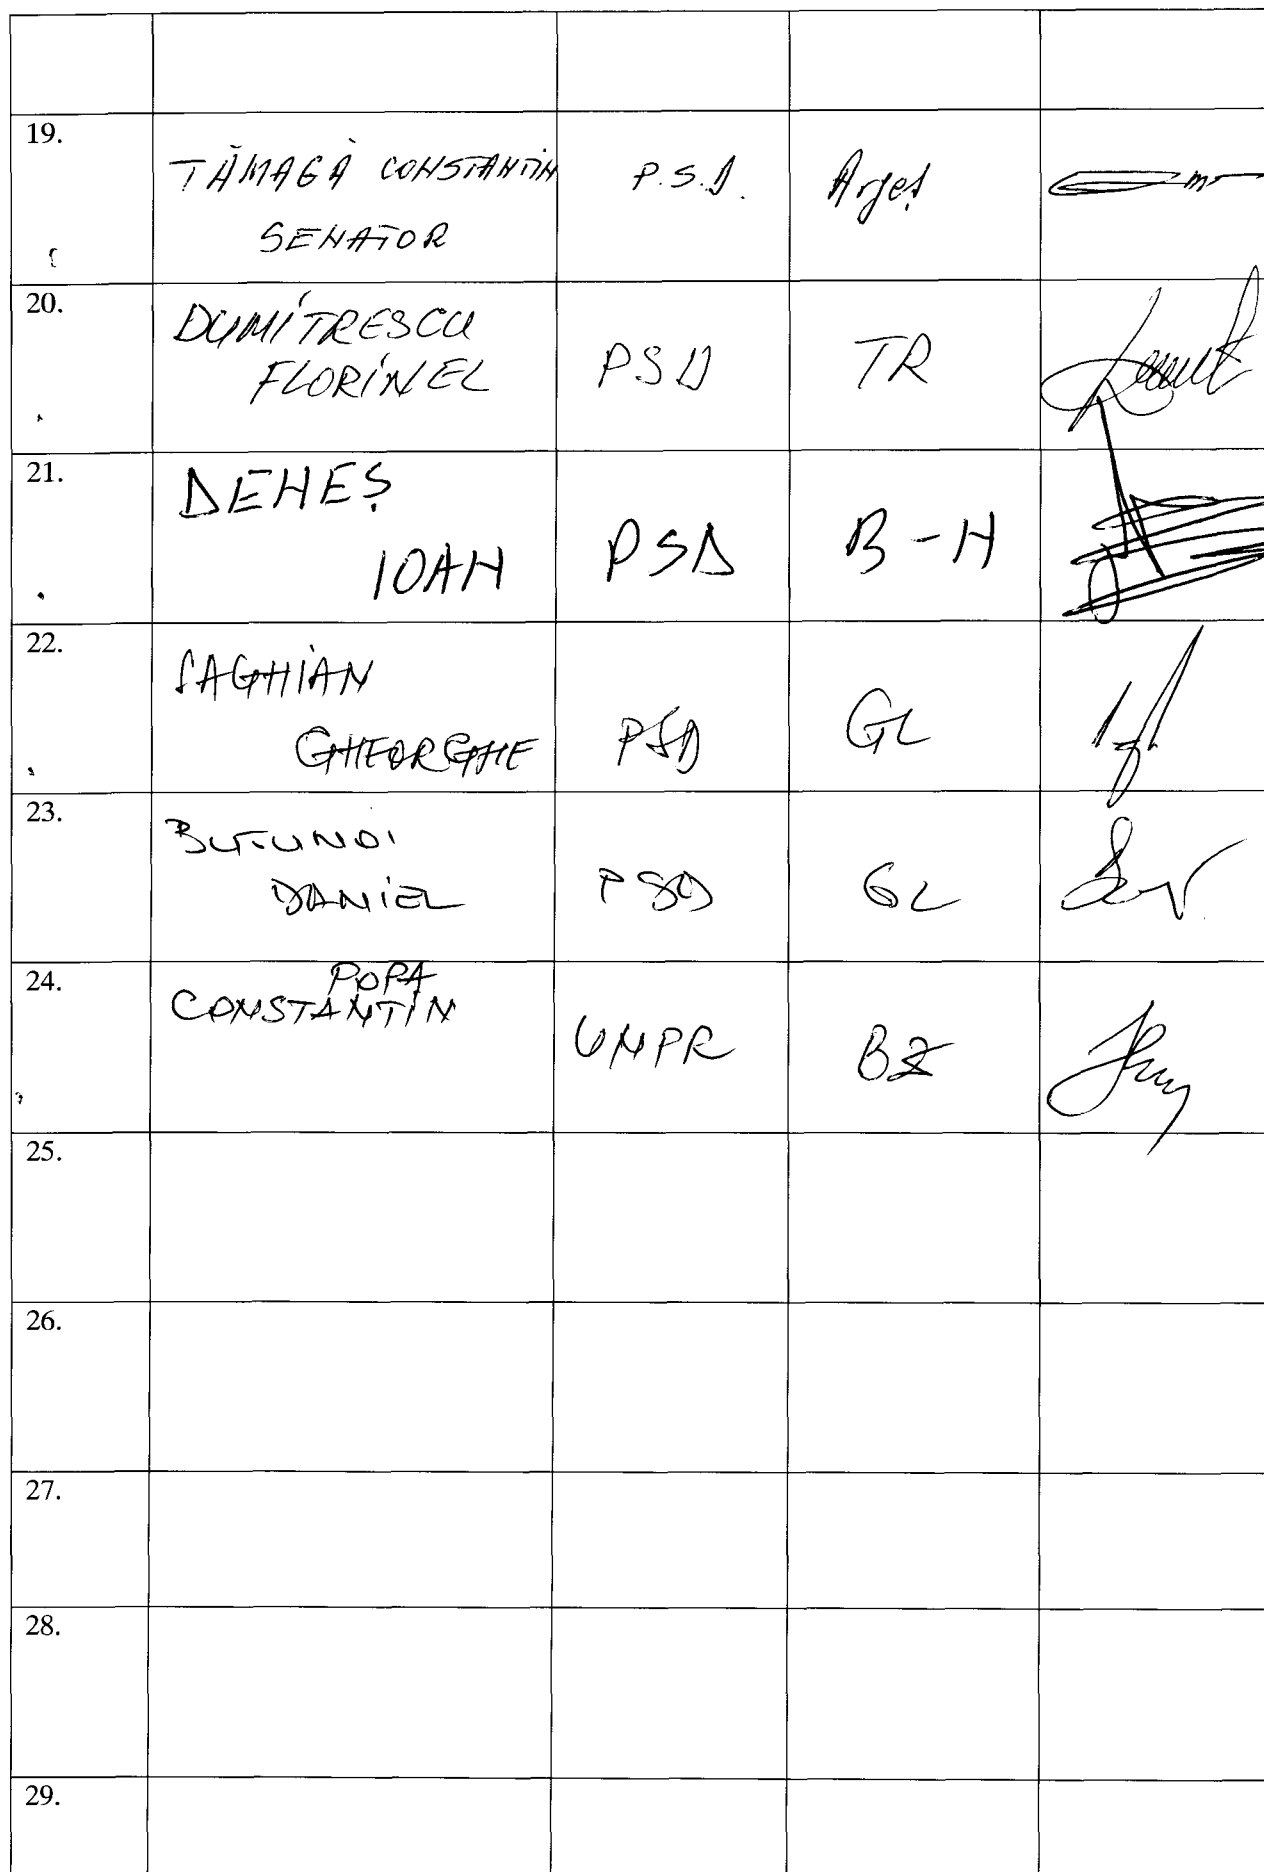 19. TĂMAGĂ CONSTANTIN P.S.D. Argeș
SENATOR
20. DUMITRESCU
FLORINEL PSD TR
21. DENEȘ
IOAN PSD B-N
22. SAGHIAN
GHEORGHE PSD GL
23. BUTUNOI
DANIEL PSD GL
24. POPA
CONSTANTIN UNPR BZ
25.
26.
27.
28.
29.